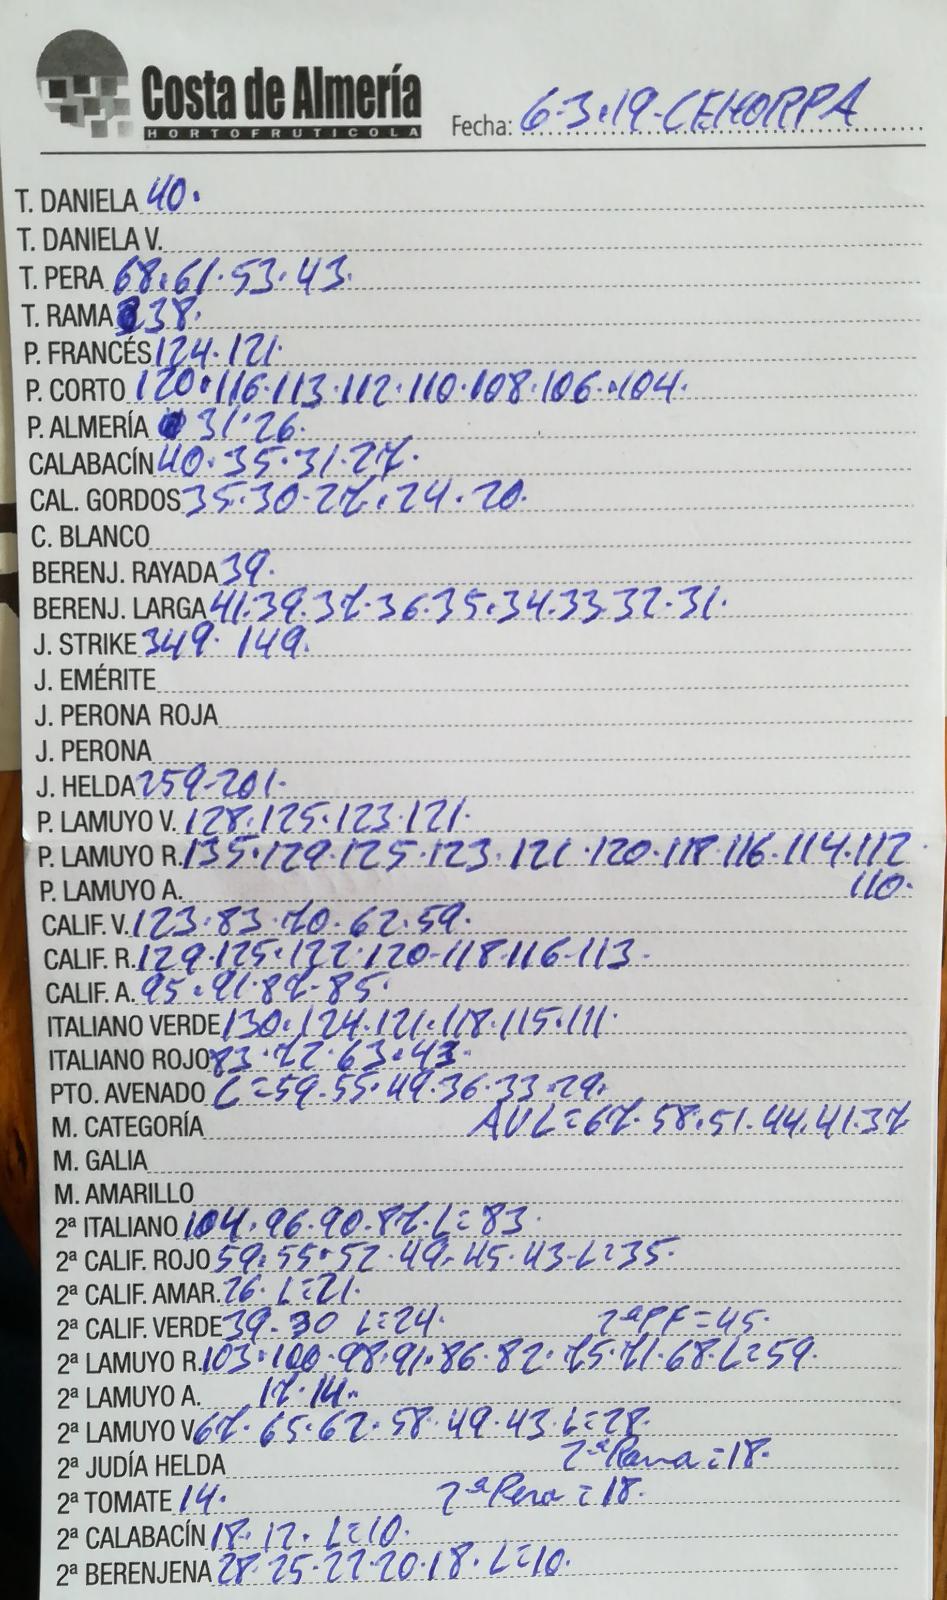 Costa de Almería
HORTOFRUTICOLA
Fecha: 6-3-19-CEHORPA
T. DANIELA 40.
T. DANIELA V.
T. PERA 68.61.53.43.
T. RAMA 38.
P. FRANCÉS 124.121.
P. CORTO 120.116.113.112.110.108.106.104.
P. ALMERÍA 31.26.
CALABACÍN 40.35.31.27.
CAL. GORDOS 35.30.27.24.20.
C. BLANCO
BERENJ. RAYADA 39.
BERENJ. LARGA 41.39.37.36.35.34.33.32.31.
J. STRIKE 349. 149.
J. EMÉRITE
J. PERONA ROJA
J. PERONA
J. HELDA 259-201.
P. LAMUYO V. 128.125.123.121.
P. LAMUYO R. 135.129.125.123.121.120.118.116.114.112.
P. LAMUYO A. 110.
CALIF. V. 123.83.70.62.59.
CALIF. R. 129.125.122.120-118.116-113.
CALIF. A. 95.91.87-85.
ITALIANO VERDE 130.124.121.118.115.111.
ITALIANO ROJO 83.72.63.43.
PTO. AVENADO L=59.55.49.36.33.29.
M. CATEGORÍA AVL=67.58.51.44.41.37
M. GALIA
M. AMARILLO
2ª ITALIANO 104.96.90.87.L=83.
2ª CALIF. ROJO 59.55.52.49.45.43-L=35.
2ª CALIF. AMAR. 26. L=21.
2ª CALIF. VERDE 39-30 L=24. 2ªPF=45.
2ª LAMUYO R. 103.100.98.91.86.82.75.71.68.L=59.
2ª LAMUYO A. 17.14.
2ª LAMUYO V. 67.65.62.58.49.43.L=28.
2ª JUDÍA HELDA 2ªRama=18.
2ª TOMATE 14. 2ªPera=18.
2ª CALABACÍN 18.12. L=10.
2ª BERENJENA 28.25.22.20.18.L=10.